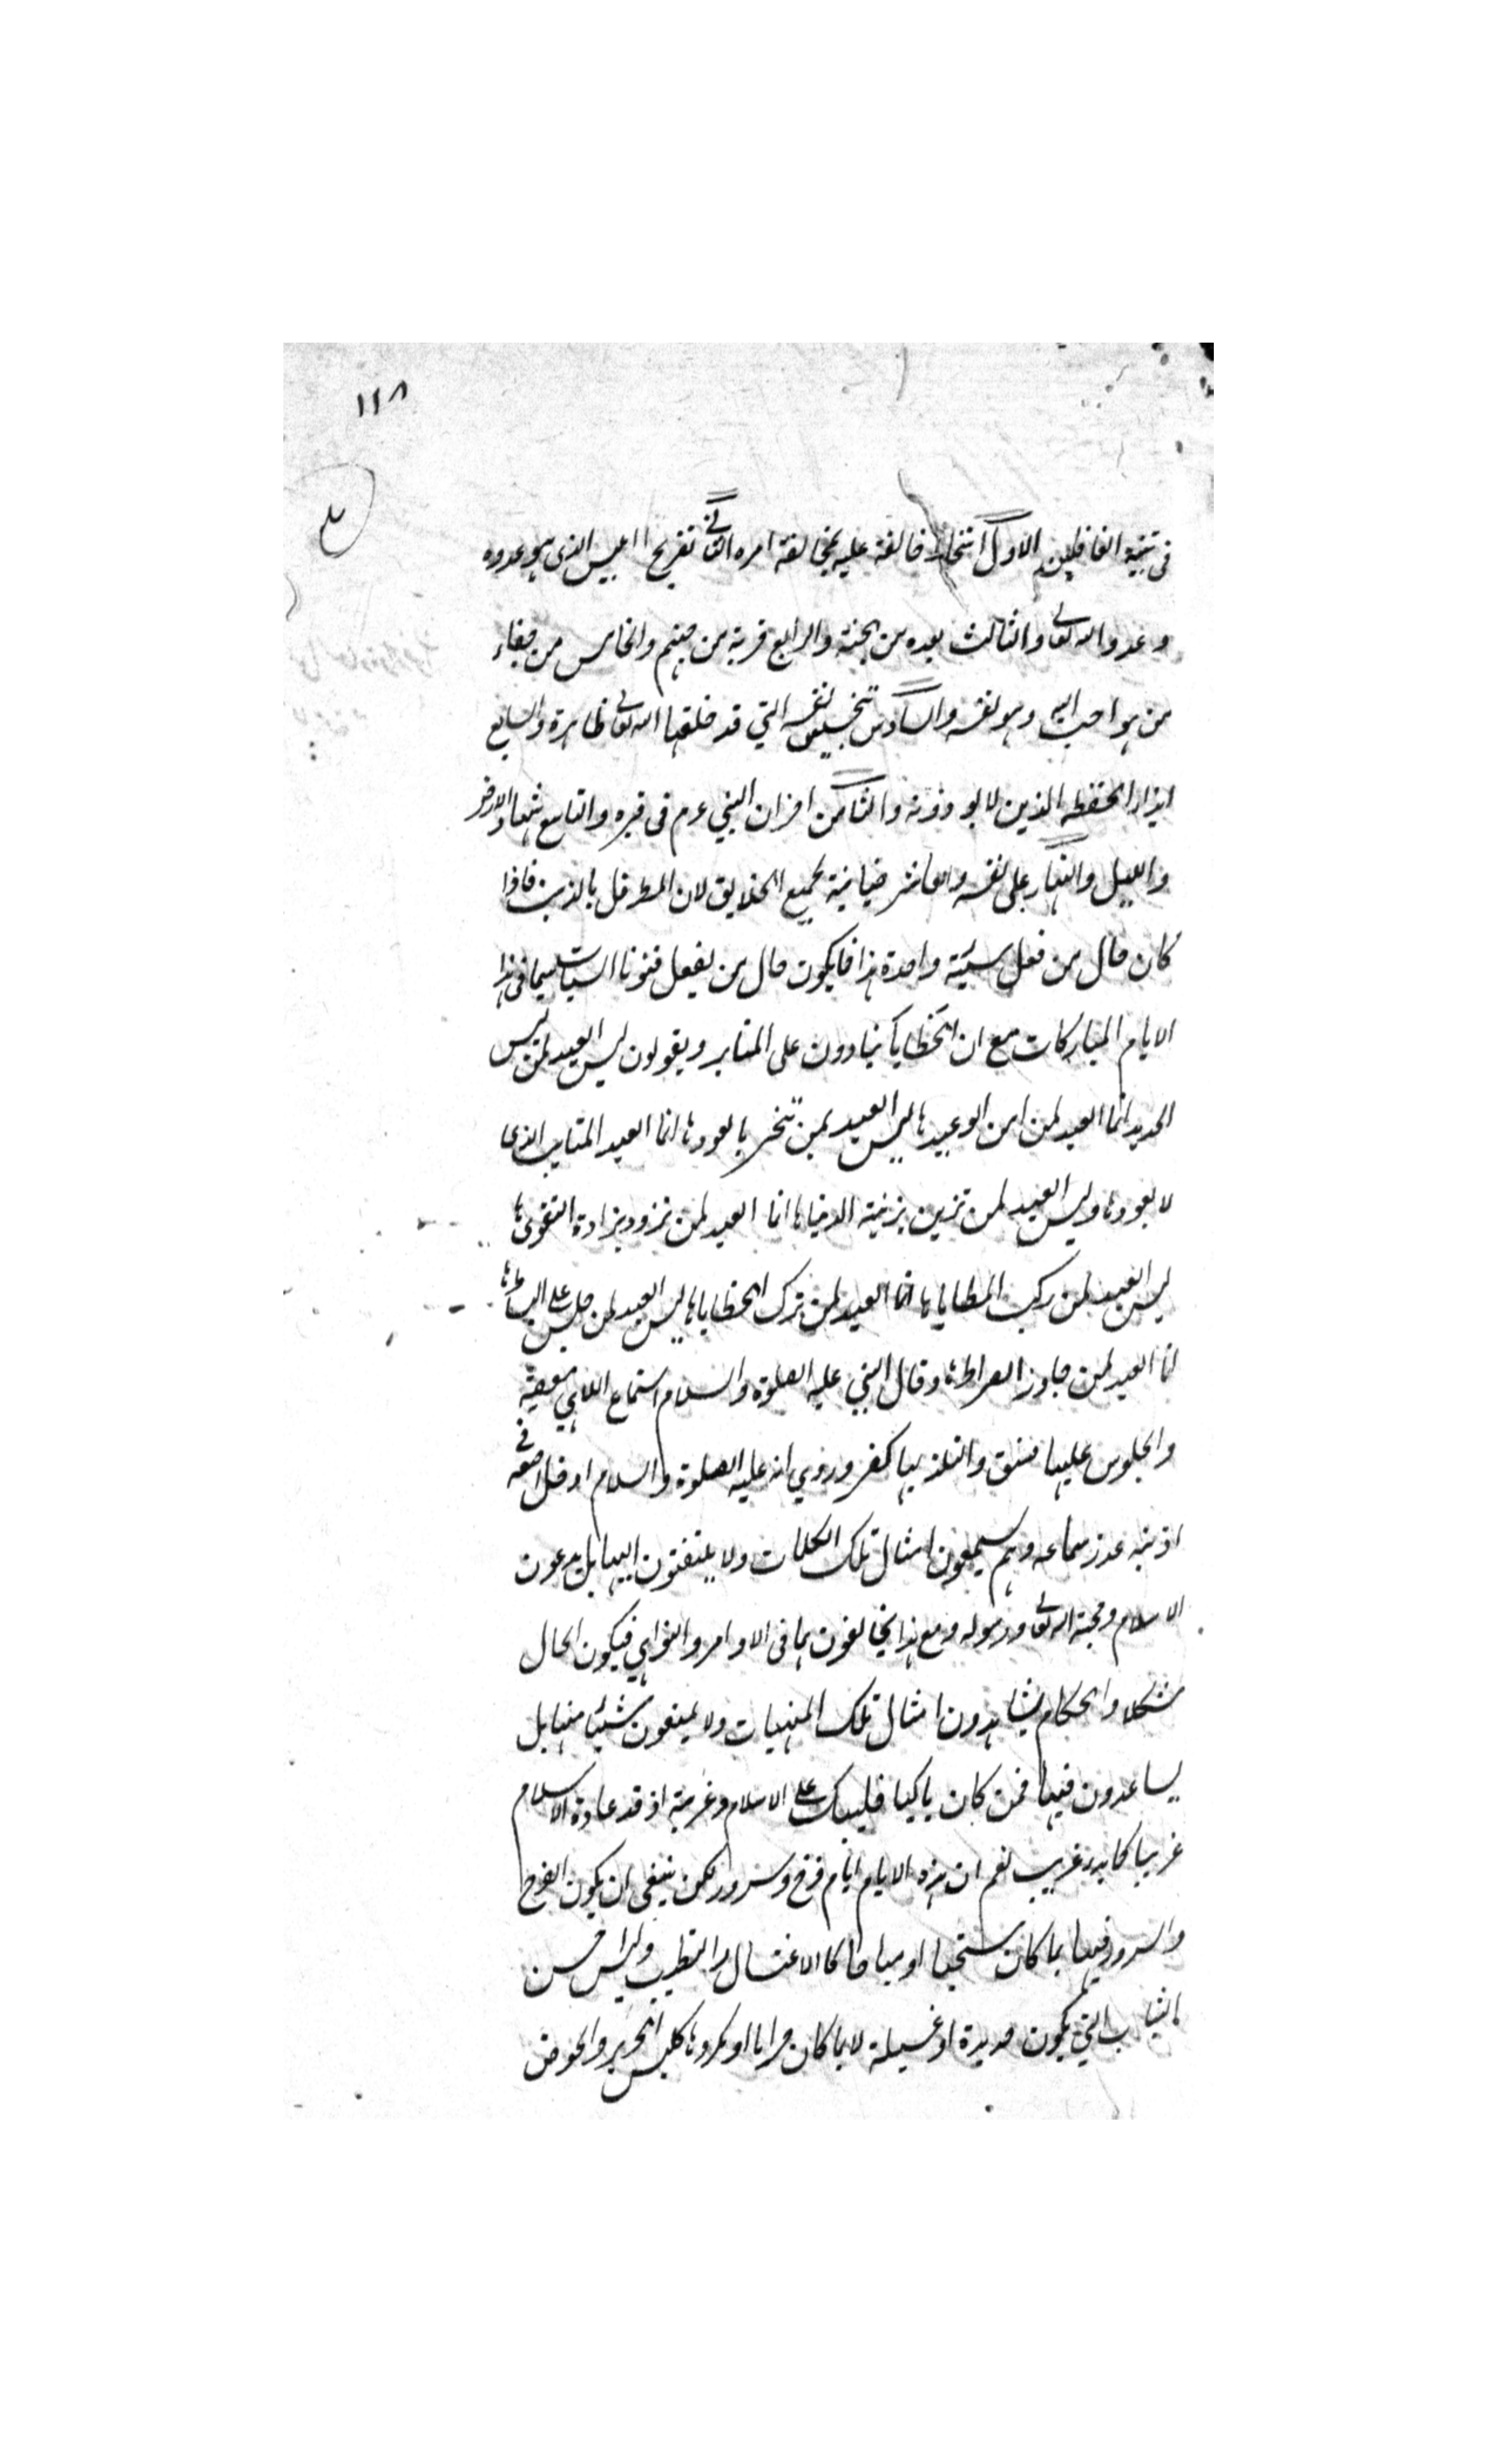 ١١٨
فى تنبيه الغافلين الاول اسخاط خالقه عليه بمخالفة امره الثانى تفريح ابليس الذى هو عدوه
وعدو الله تعالى والثالث بعده من الجنة والرابع قربة من جهنم والخامس من جفاء
من هو احب اليه وهو نفسه والسادس تنجيس نفسه التي قد خلقها الله تعالى طاهرة والسابع
ايذاء الحفظه الذين لا يوذونه والثامن احزان النبي عم فى قبره والتاسع اشهاد الارض
والليل والنهار على نفسه والعاشر خيانية لجميع الخلايق لان المطر قل بالذنب فاذا
كان حال من فعل سيئة واحدة هذا فما يكون حال من يفعل فنونا السيات سيما فى هذا
الايام المباركات مع ان الخطبا ينادون على المنابر ويقولون ليس العيد لمن لبس
الجديد انما العيد لمن امن الوعيد ها ليس العيد لمن تبخر بالعود ها انما العيد المتايب الذى
لا يعود ها وليس العيد لمن تزين بزينة الدنيا ها انما العيد لمن تزود بزادة التقوى ها
ليس العيد لمن ركب المطايا ها انما العيد لمن ترك الخطايا ها ليس العيد لمن جلس على البساط ها
انما العيد لمن جاوز الصراط ها وقال النبي عليه الصلوة والسلام استماع الملاهي معصية
والجلوس عليها فسق والتلذذ بها كفر وروي انه عليه الصلوة والسلام ادخل اصبعه فى
اذنيه عند سماعه وهم يسمعون امثال تلك الكلمات ولا يلتفتون اليها بل يدعون
الاسلام ومحبة الله تعالى ورسوله ومع هذا يخالفون بما فى الاوامر والنواهي فيكون الحال
مشكلا والحكام يشاهدون امثال تلك المنهيات ولا يمنعون شيئا منها بل
يساعدون فيها فمن كان باكيا فليبك على الاسلام وغربته اذ قد عادة الاسلام
غريبا كما بدء غريب نعم ان هذه الايام ايام فرح وسرور لكن ينبغى ان يكون الفرح
والسرور فيها بما كان مستحبا او مباحا كالاغتسال والتطيب ولبس احسن
الثياب التي يكون جديدة او غسيلة لا بما كان حراما او مكروها كلبس الحرير والخوض